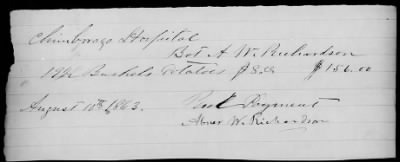 Chimborazo Hospital
Bot. of A. W. Richardson
Bushels Potatoes $8.00 $156.00
August 10th 1863. Rec'd Payment
Abner W. Richardson